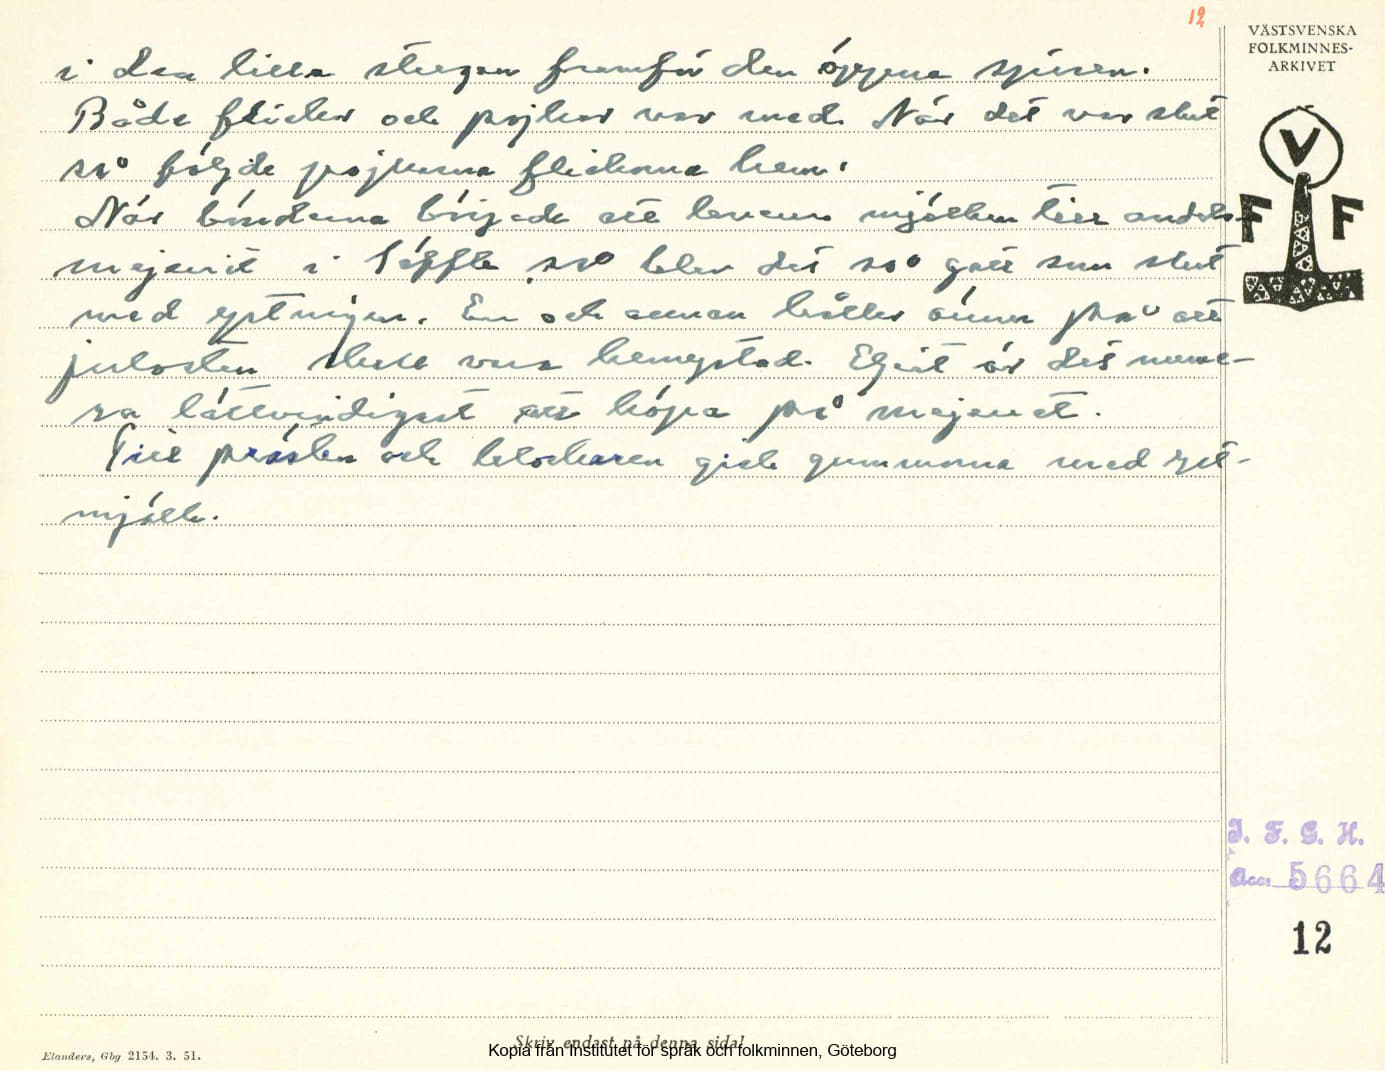 12
VÄSTSVENSKA
FOLKMINNES-
ARKIVET
V
F F
i den lilla stugan framför den öppna spisen.
Både flickor och pojkar var med. När det var slut
så följde pojkarna flickorna hem.
När bönderna började att leverera mjölken till andels-
mejeriet i Töftle så blev det så gott som slut
med ystningen. En och annan håller ännu på att
julosten skall vara hemystad. Eljest är det nume-
ra lättvindigast att köpa på mejeriet.
Till prästen och klockaren gick gummorna med yst-
mjölk.
I. F. G. H.
Acc. 5664
12
Skriv endast på denna sida!
Elanders, Gbg 2154. 3. 51.
Kopia från Institutet för språk och folkminnen, Göteborg